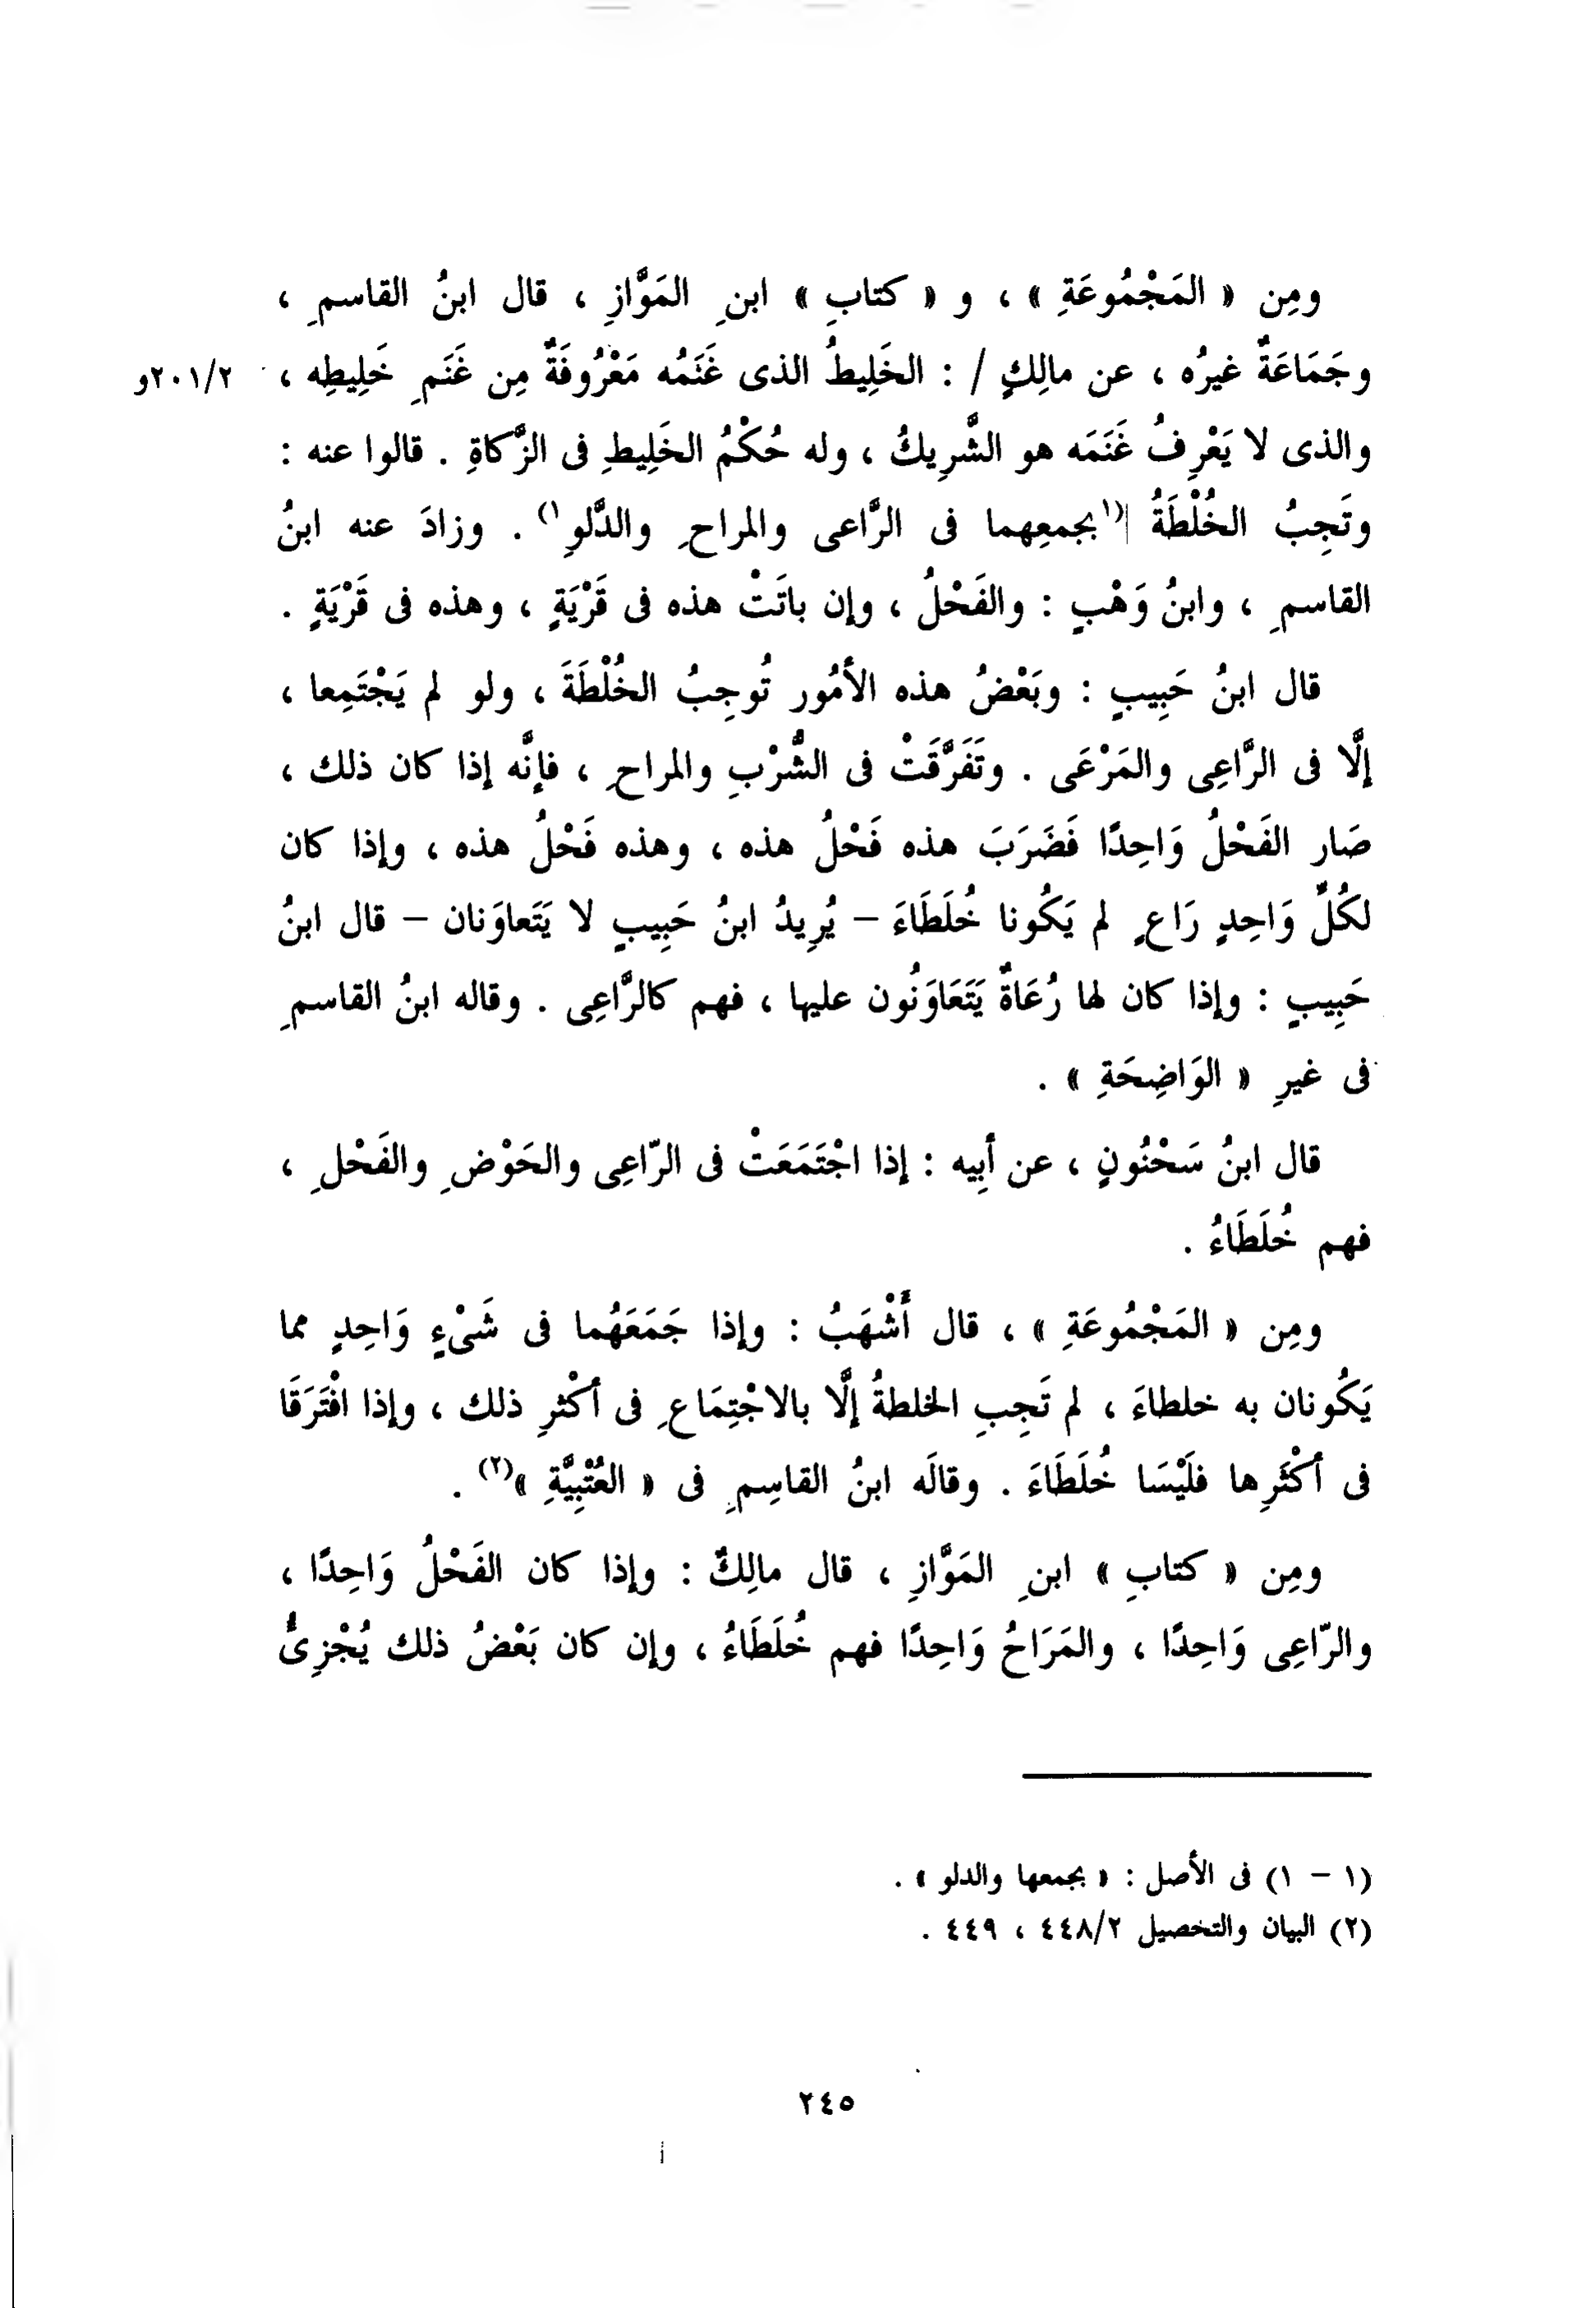 ومِن « المَجْمُوعَةِ » ، و « كتابِ » ابنِ المَوَّازِ ، قال ابنُ القاسمِ ،
وجَمَاعَةٌ غيرُه ، عن مالِكٍ / : الخَلِيطُ الذى غَنَمُه مَعْرُوفَةٌ مِن غَنَمِ خَلِيطِه ، ٢٠١/٢و
والذى لا يَعْرِفُ غَنَمَه هو الشَّرِيكُ ، وله حُكْمُ الخَلِيطِ فى الزَّكاةِ . قالوا عنه :
وتَجِبُ الخُلْطَةُ (١بجمعِهما فى الرَّاعى والمراحِ والدَّلوِ١) . وزادَ عنه ابنُ
القاسمِ ، وابنُ وَهْبٍ : والفَحْلُ ، وإن باتَتْ هذه فى قَرْيَةٍ ، وهذه فى قَرْيَةٍ .
قال ابنُ حَبِيبٍ : وبَعْضُ هذه الأمُورِ تُوجِبُ الخُلْطَةَ ، ولو لم يَجْتَمِعا ،
إلَّا فى الرَّاعِى والمَرْعَى . وتَفَرَّقَتْ فى الشُّرْبِ والمراحِ ، فإنَّه إذا كان ذلك ،
صَار الفَحْلُ وَاحِدًا فَضَرَبَ هذه فَحْلُ هذه ، وهذه فَحْلُ هذه ، وإذا كان
لكُلِّ وَاحِدٍ رَاعٍ لم يَكُونا خُلَطَاءَ – يُرِيدُ ابنُ حَبِيبٍ لا يَتَعاوَنان – قال ابنُ
حَبِيبٍ : وإذا كان لها رُعَاةٌ يَتَعَاوَنُون عليها ، فهم كالرَّاعِى . وقاله ابنُ القاسمِ
فى غيرِ « الوَاضِحَةِ » .
قال ابنُ سَحْنُونٍ ، عن أبِيه : إذا اجْتَمَعَتْ فى الرّاعِى والحَوْضِ والفَحْلِ ،
فهم خُلَطَاءُ .
ومِن « المَجْمُوعَةِ » ، قال أَشْهَبُ : وإذا جَمَعَهُما فى شَىْءٍ وَاحِدٍ مما
يَكُونان به خلطاءَ ، لم تَجِبِ الخلطةُ إلَّا بالاجْتِمَاعِ فى أكْثرِ ذلك ، وإذا افْتَرَقَا
فى أكْثَرِها فلَيْسَا خُلَطَاءَ . وقالَه ابنُ القاسِمِ فى « العُتْبِيَّةِ »(٢) .
ومِن « كتابِ » ابنِ المَوَّازِ ، قال مالِكٌ : وإذا كان الفَحْلُ وَاحِدًا ،
والرّاعِى وَاحِدًا ، والمَرَاحُ وَاحِدًا فهم خُلَطَاءُ ، وإن كان بَعْضُ ذلك يُجْزِئُ
(١ – ١) فى الأصل : « بجمعها والدلو » .
(٢) البيان والتحصيل ٤٤٨/٢ ، ٤٤٩ .
٢٤٥